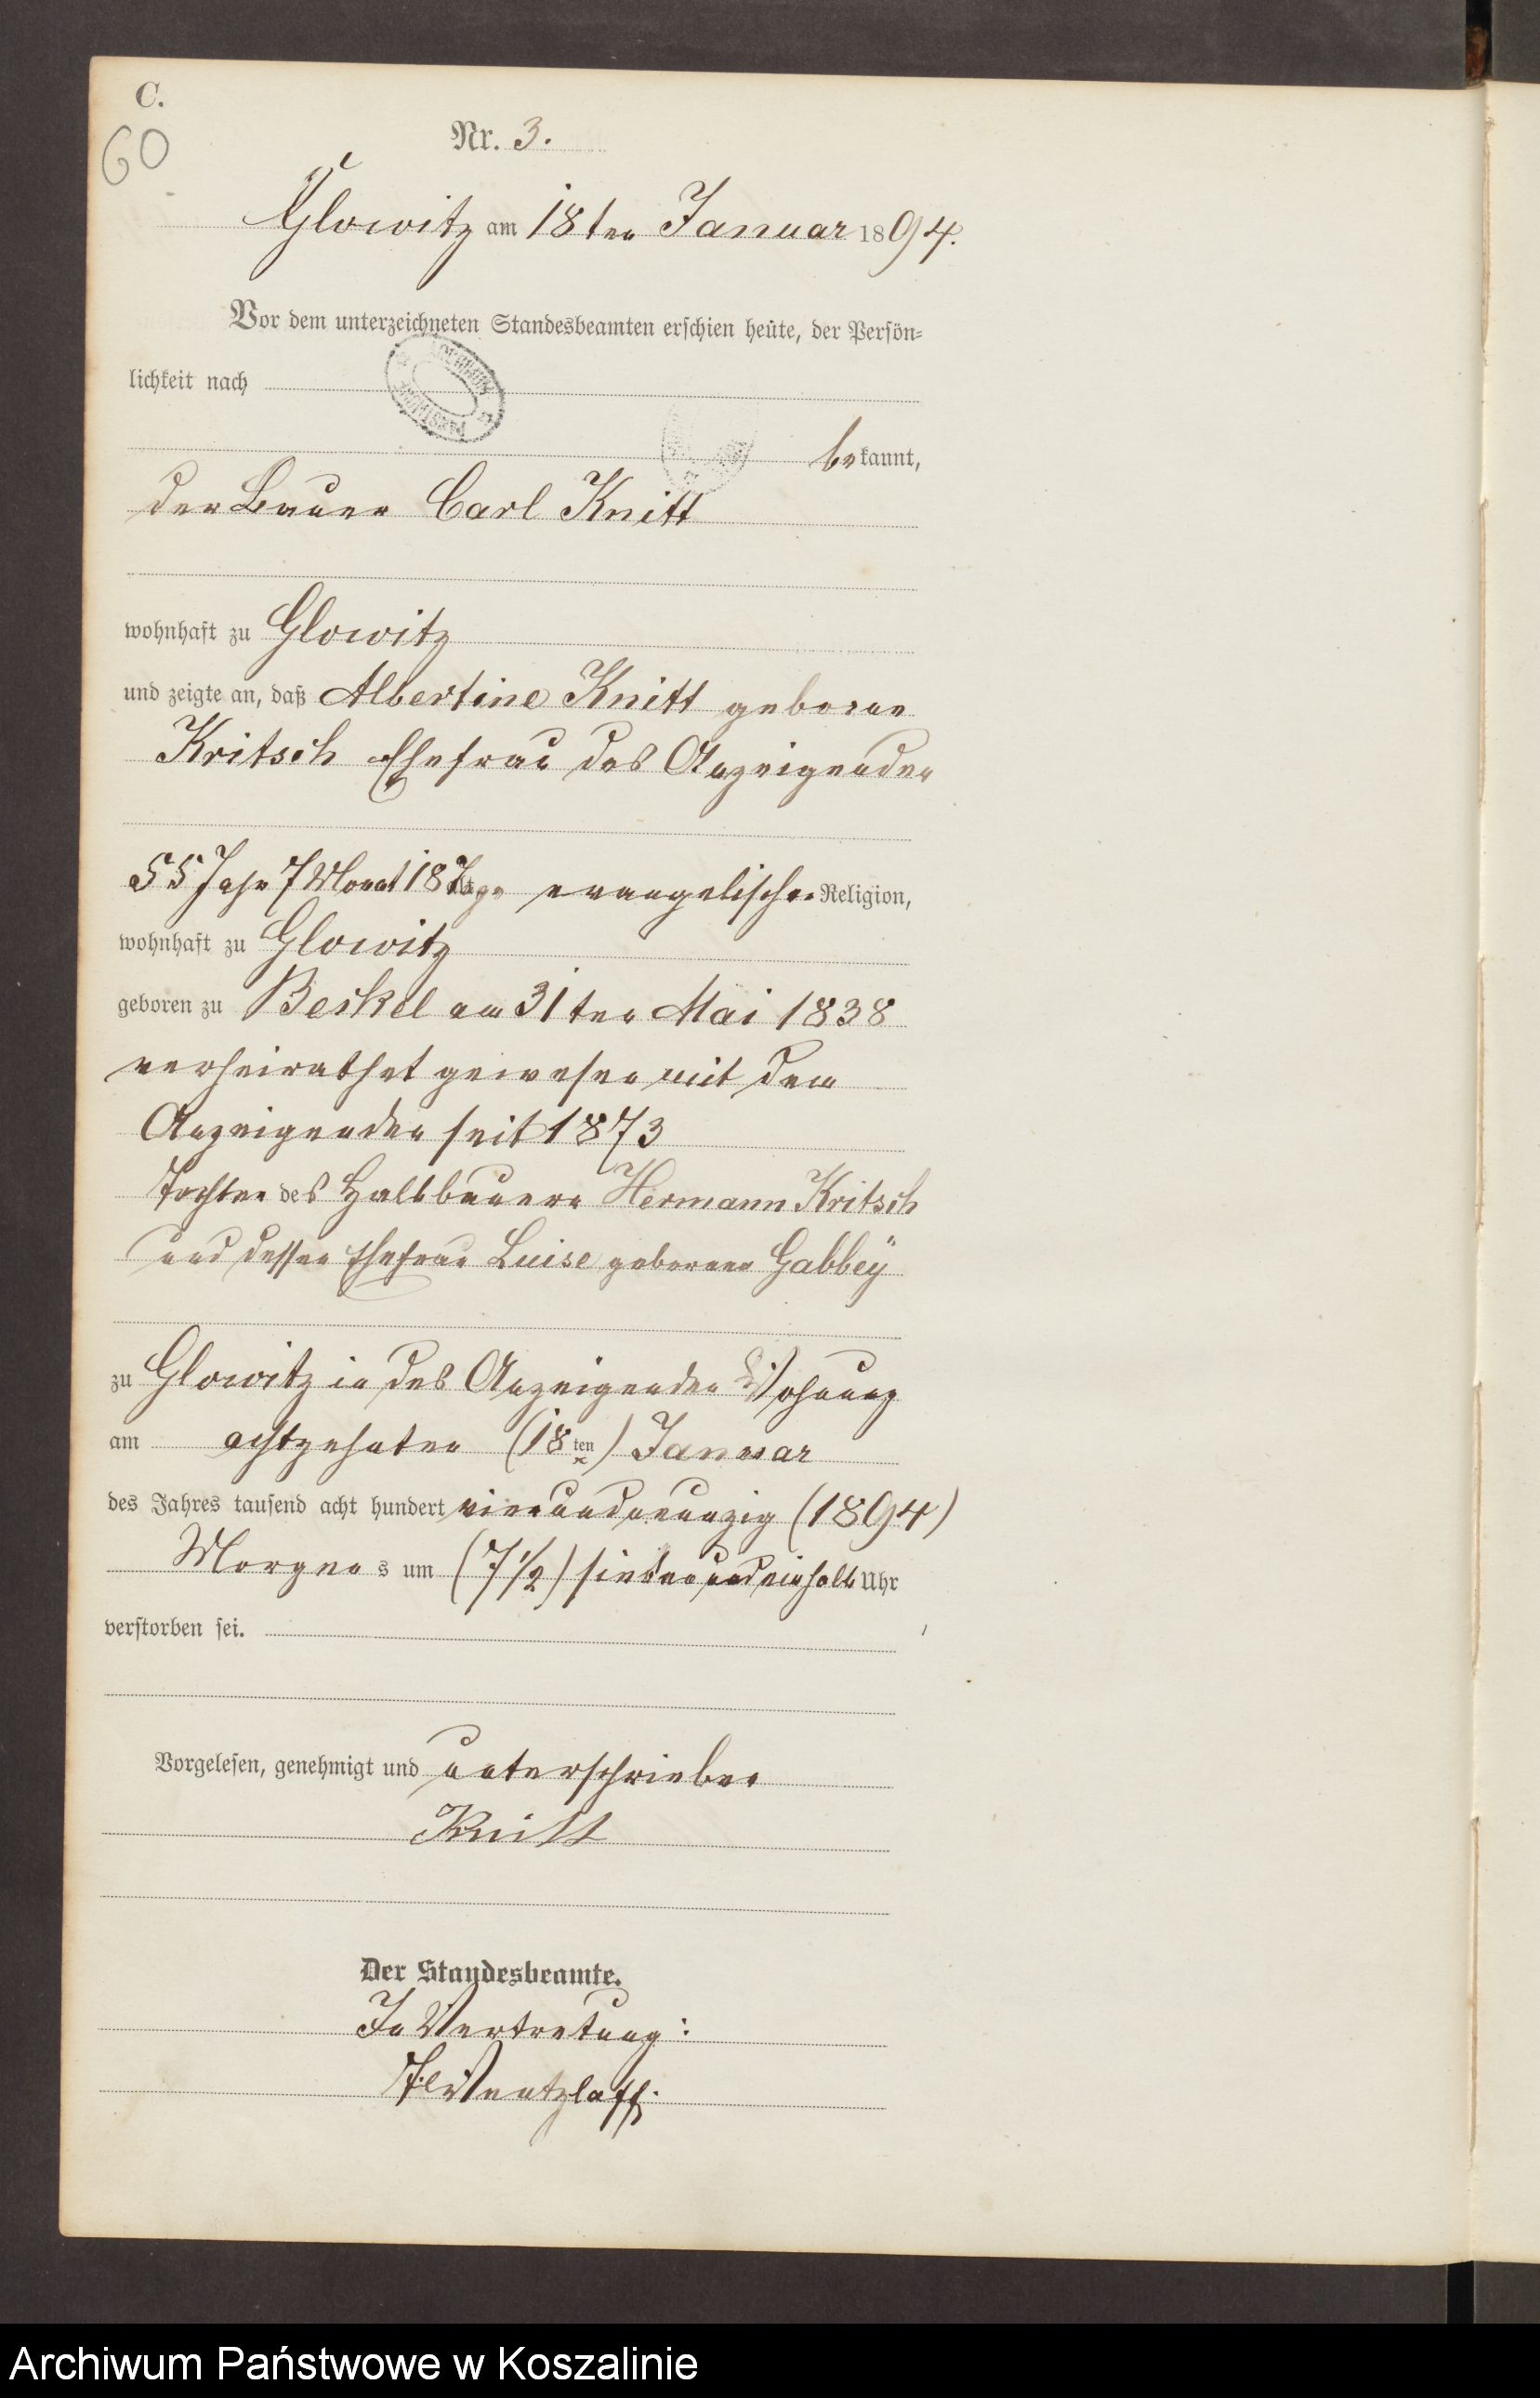 C.
60
Nr. 3.
Glowitz am 18ten Januar 1894.
Vor dem unterzeichneten Standesbeamten erschien heute, der Persön=
lichkeit nach
bekannt,
der Bauer Carl Knitt
wohnhaft zu Glowitz
und zeigte an, daß Albertine Knitt geborne
Kritsch Ehefrau des Anzeigenden
55 Jahr 7 Monat 18 Tage evangelischer Religion,
wohnhaft zu Glowitz
geboren zu Beskel am 31ten Mai 1838
verheirathet gewesen mit dem
Anzeigenden seit 1873
Tochter des Halbbauern Hermann Kritsch
und dessen Ehefrau Luise geborene Gabbeÿ
zu Glowitz in des Anzeigenden Wohnung
am achtzehnten (18ten) Januar
des Jahres tausend acht hundert vierundneunzig (1894)
Morgens um (7 1/2) siebenundeinhalb Uhr
verstorben sei.
Vorgelesen, genehmigt und unterschrieben
Knitt
Der Standesbeamte.
In Vertretung:
Wentzlaff.
Archiwum Państwowe w Koszalinie